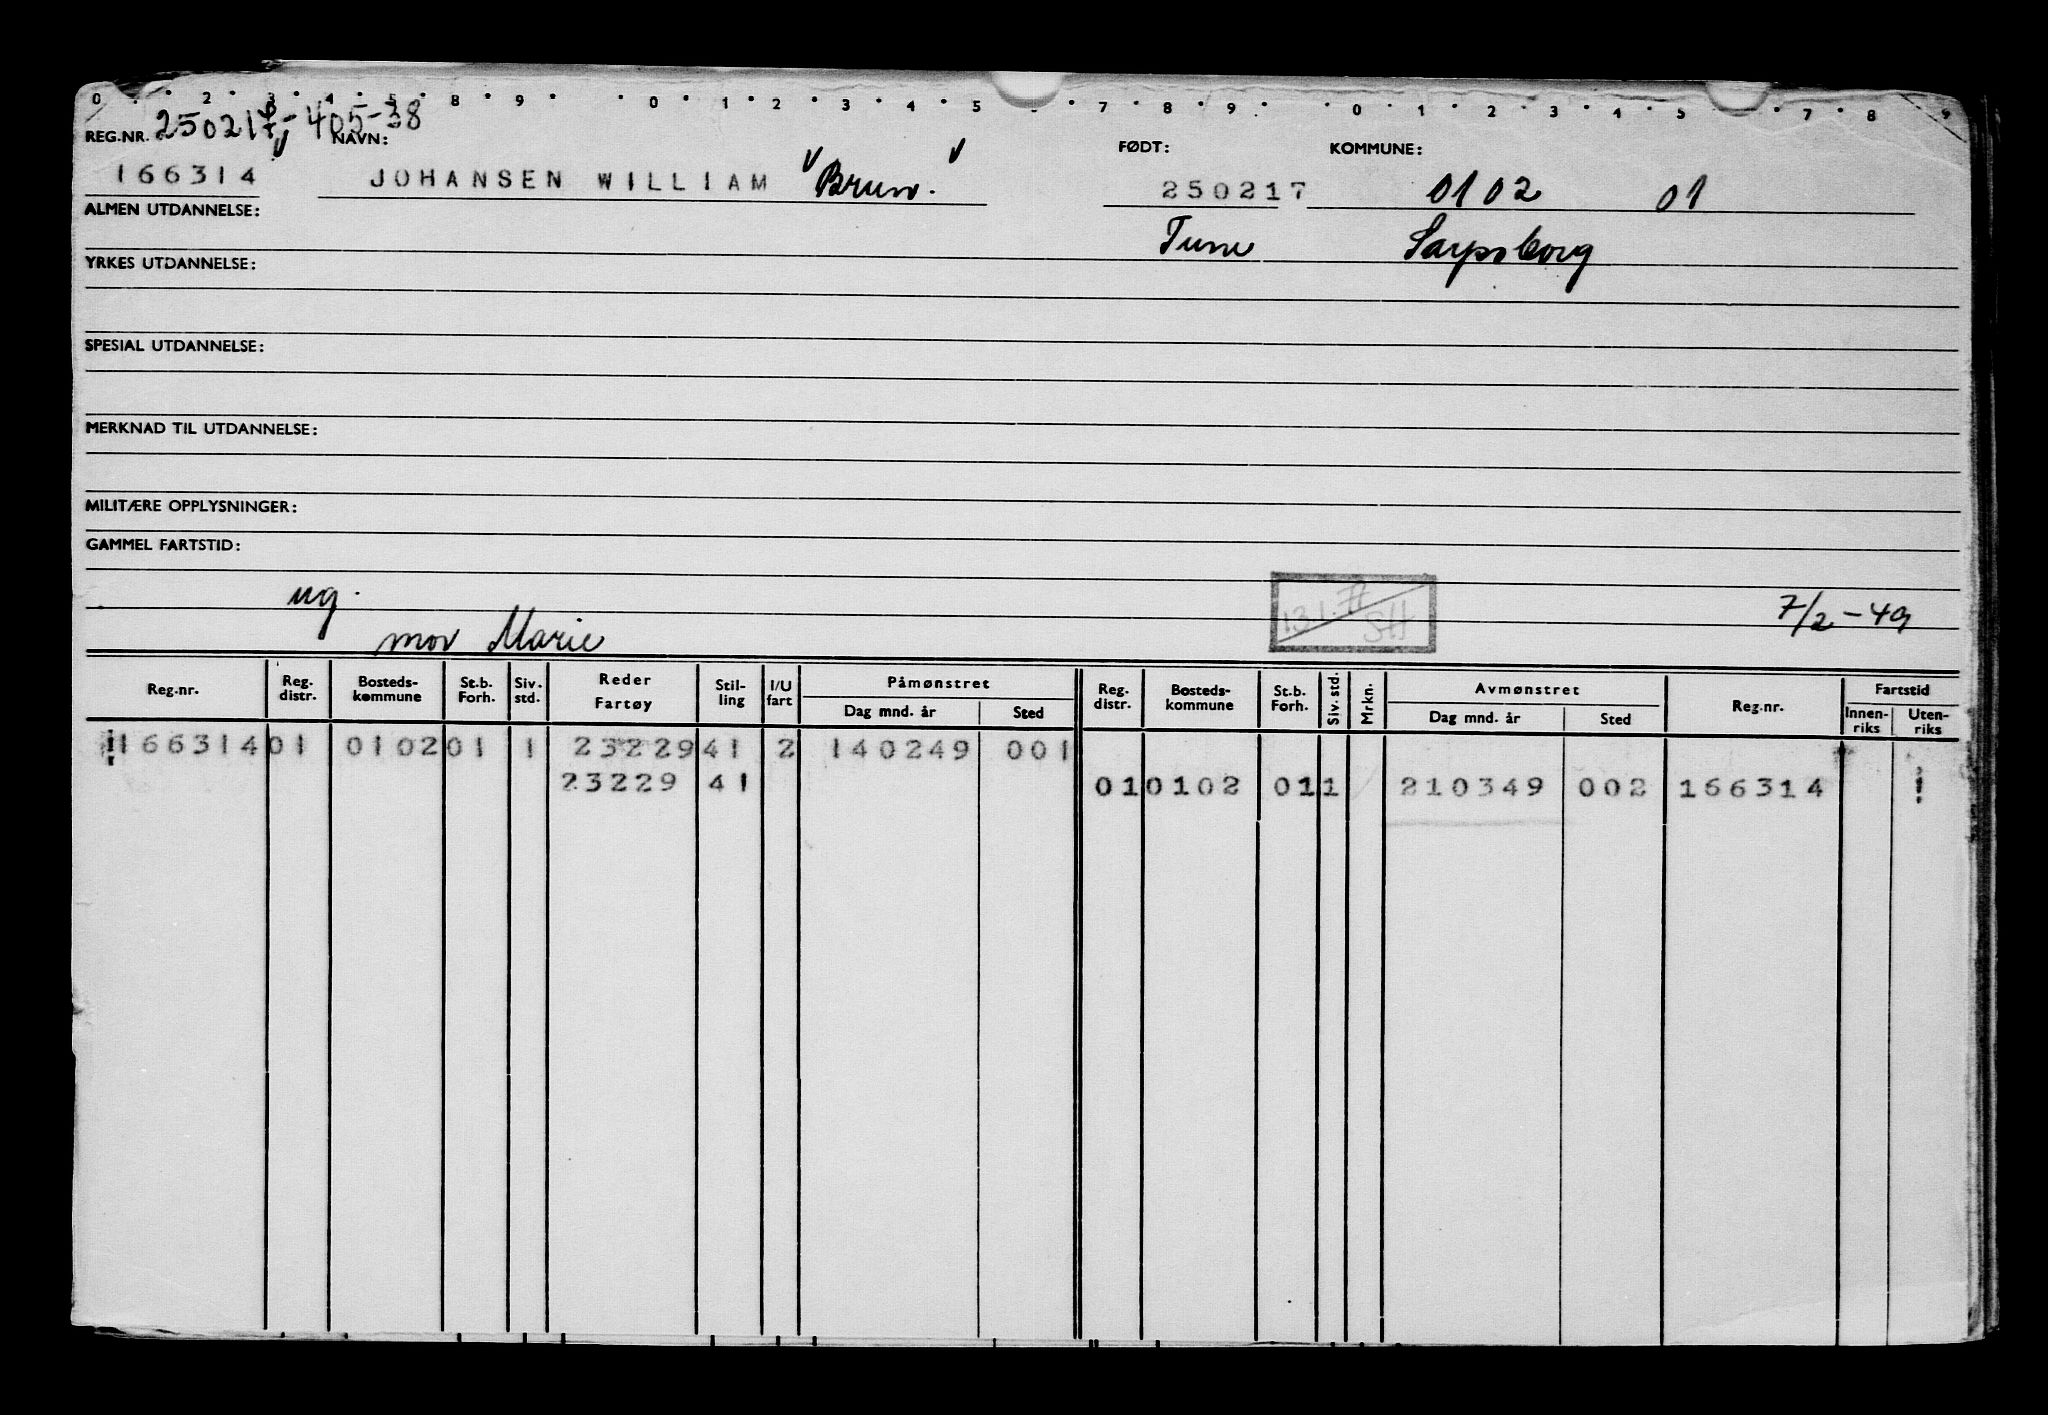 0 · 2 · 3 · 4 · 5 · 8 · 9 · · 0 · 1 · 2 · 3 · 4 · 5 · 7 · 8 · 9 · · 0 · 1 · 2 · 3 · 4 · 5 · 7 · 8 9
250217 405-38
REG.NR. NAVN: FØDT: KOMMUNE:
166314 JOHANSEN WILLIAM "Brun." 250217 0102 01
ALMEN UTDANNELSE: Tune Sarpsborg
YRKES UTDANNELSE:
SPESIAL UTDANNELSE:
MERKNAD TIL UTDANNELSE:
MILITÆRE OPPLYSNINGER:
GAMMEL FARTSTID:
ug. 7/2-49
mor Marie
Reg.nr. Reg. distr. Bosteds-kommune St.b. Forh. Siv. std. Reder Fartøy Stil-ling I/U fart Påmønstret Dag mnd. år Sted Reg. distr. Bosteds-kommune St.b. Forh. Siv. std. Mrkn. Avmønstret Dag mnd. år Sted Reg.nr. Fartstid Innen-riks Uten-riks
!166314 01 0102 01 1 23229 41 2 140249 001
23229 41 01 0102 01 1 210349 002 166314 !